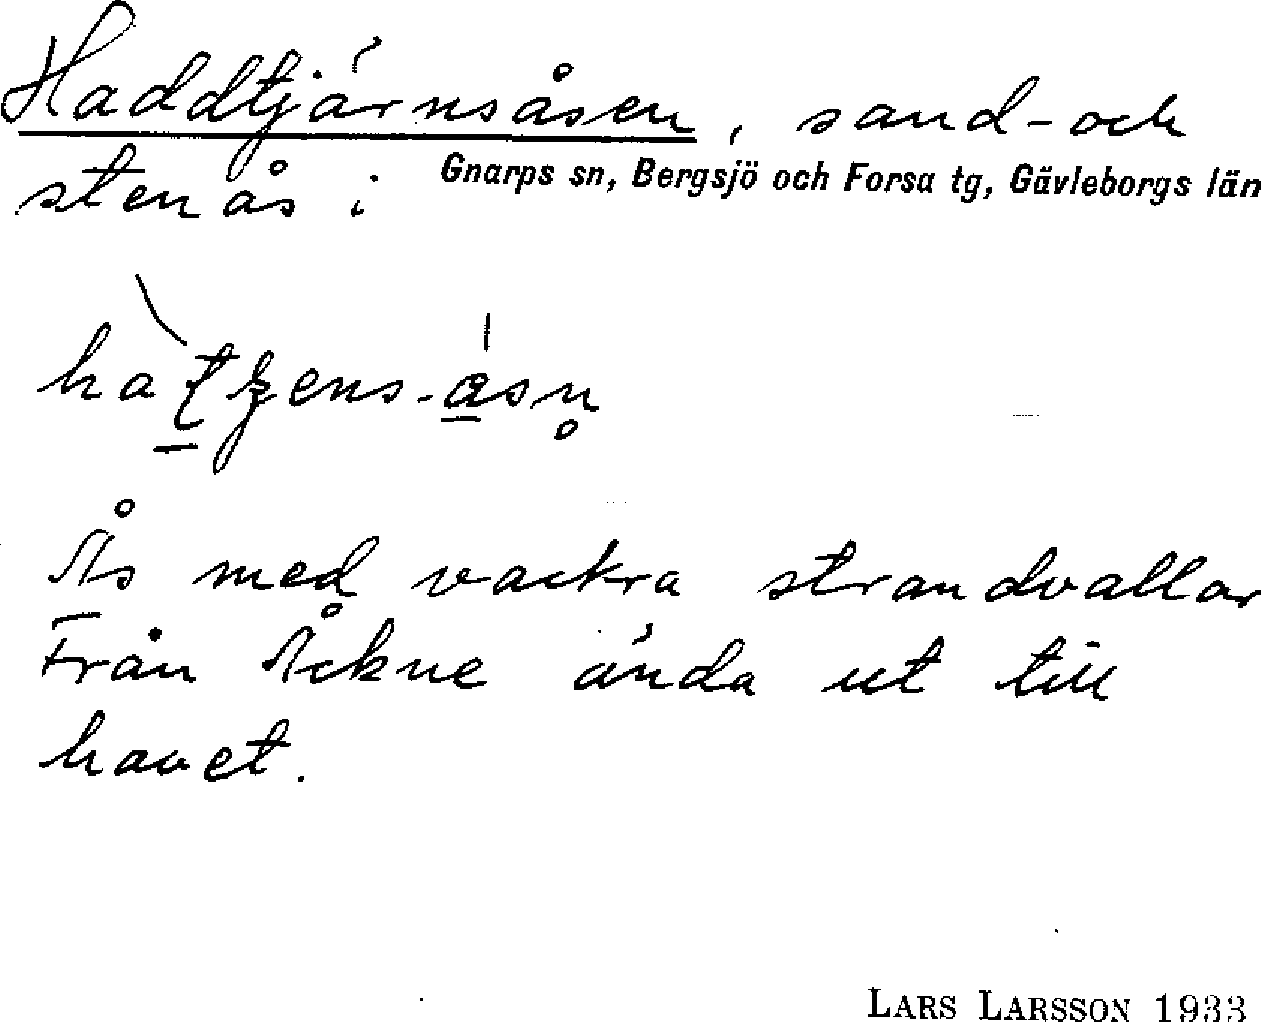 Haddtjärnsåsen, sand- och
stenås i Gnarps sn, Bergsjö och Forsa tg, Gävleborgs län
Ås med vackra strandvallar
Från Åckne ända ut till
havet.
LARS LARSSON 1933